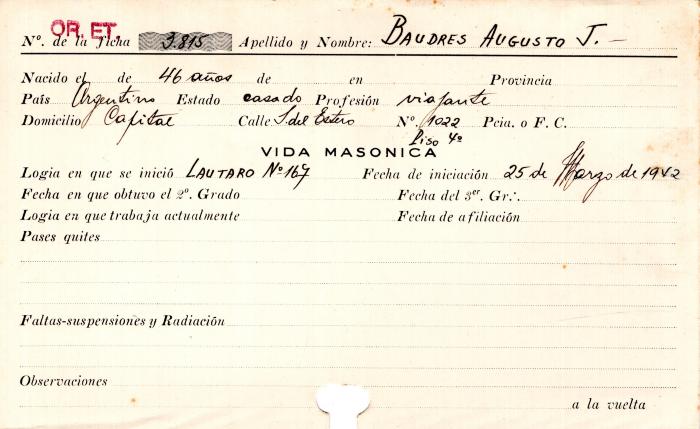 OR. ET.
Nº. de la ficha 3.815 Apellido y Nombre: BAUDRES AUGUSTO J. —
Nacido el de 46 años de en Provincia
País Argentino Estado casado Profesión viajante
Domicilio Capital Calle S. del Estero Nº. 1022 Pcia. o F. C.
Piso 4º
VIDA MASONICA
Logia en que se inició LAUTARO Nº 167 Fecha de iniciación 25 de Marzo de 1942
Fecha en que obtuvo el 2º. Grado Fecha del 3er. Gr∴
Logia en que trabaja actualmente Fecha de afiliación
Pases quites
Faltas-suspensiones y Radiación
Observaciones
a la vuelta